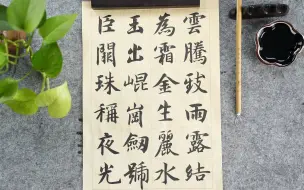 雲騰致雨露結
為霜金生麗水
玉出崐崗劒號
巨闕珠稱夜光